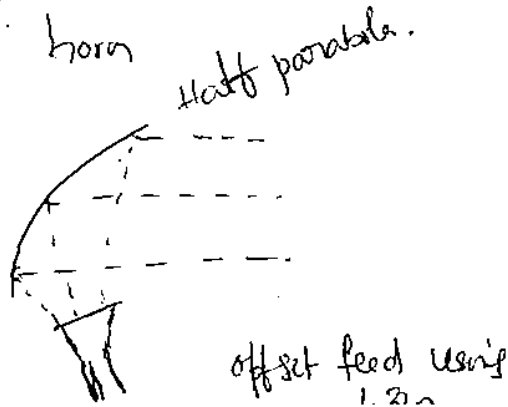 horn
Half parabola.
offset feed using